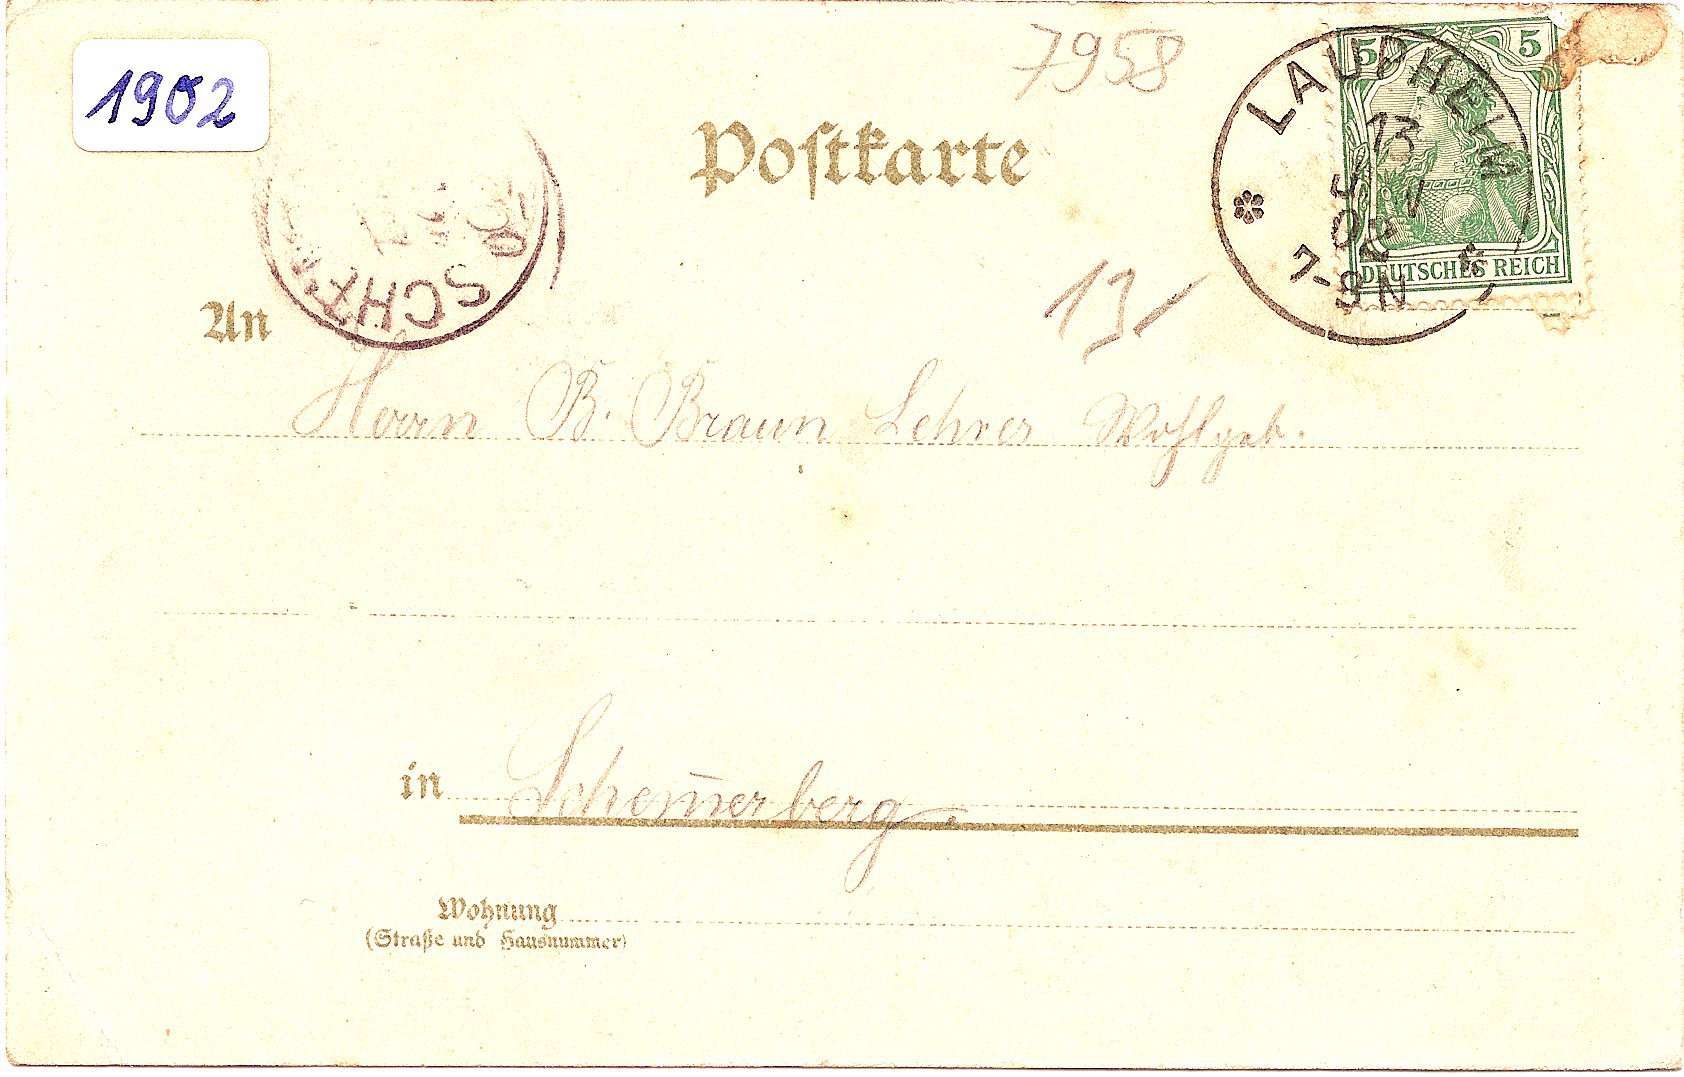 1902
7958
Postkarte
5 5
DEUTSCHES REICH
LAUPHEIM
13
02
7-8N
SCH
13
An
Herrn B. Braun Lehrer Wohlgeb.
in Schem̅erberg.
Wohnung
(Straße und Hausnummer)